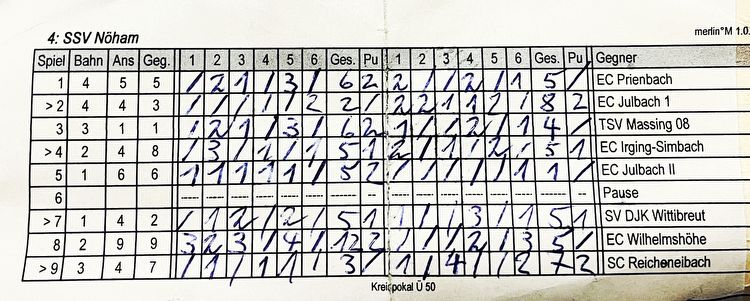 4: SSV Nöham
merlin°M 1.0.
Spiel Bahn Ans Geg. 1 2 3 4 5 6 Ges. Pu 1 2 3 4 5 6 Ges. Pu Gegner
1 4 5 5 / 2 1 / 3 / 6 2 2 / / 2 / 1 5 / EC Prienbach
>2 4 4 3 / / / / / 2 2 / 2 2 1 1 2 / 8 2 EC Julbach 1
3 3 1 1 / 2 1 / 3 / 6 2 1 / / 2 / 1 4 / TSV Massing 08
>4 2 4 8 / 3 / 1 / 1 5 1 2 / 1 / 2 / 5 1 EC Irging-Simbach
5 1 6 6 1 1 1 1 1 / 5 2 / / / / / 1 1 / EC Julbach II
6 ----- ----- ----- ----- ----- ----- ----- ----- ----- ----- ----- ----- ----- ----- ----- ----- Pause
>7 1 4 2 / 1 2 / 2 / 5 1 1 / / 3 / 1 5 1 SV DJK Wittibreut
8 2 9 9 3 2 3 / 4 / 12 2 / / / 2 / 3 5 / EC Wilhelmshöhe
>9 3 4 7 / 1 / 1 1 / 3 / / 1 / 4 / 2 7 2 SC Reicheneibach
Kreispokal Ü 50